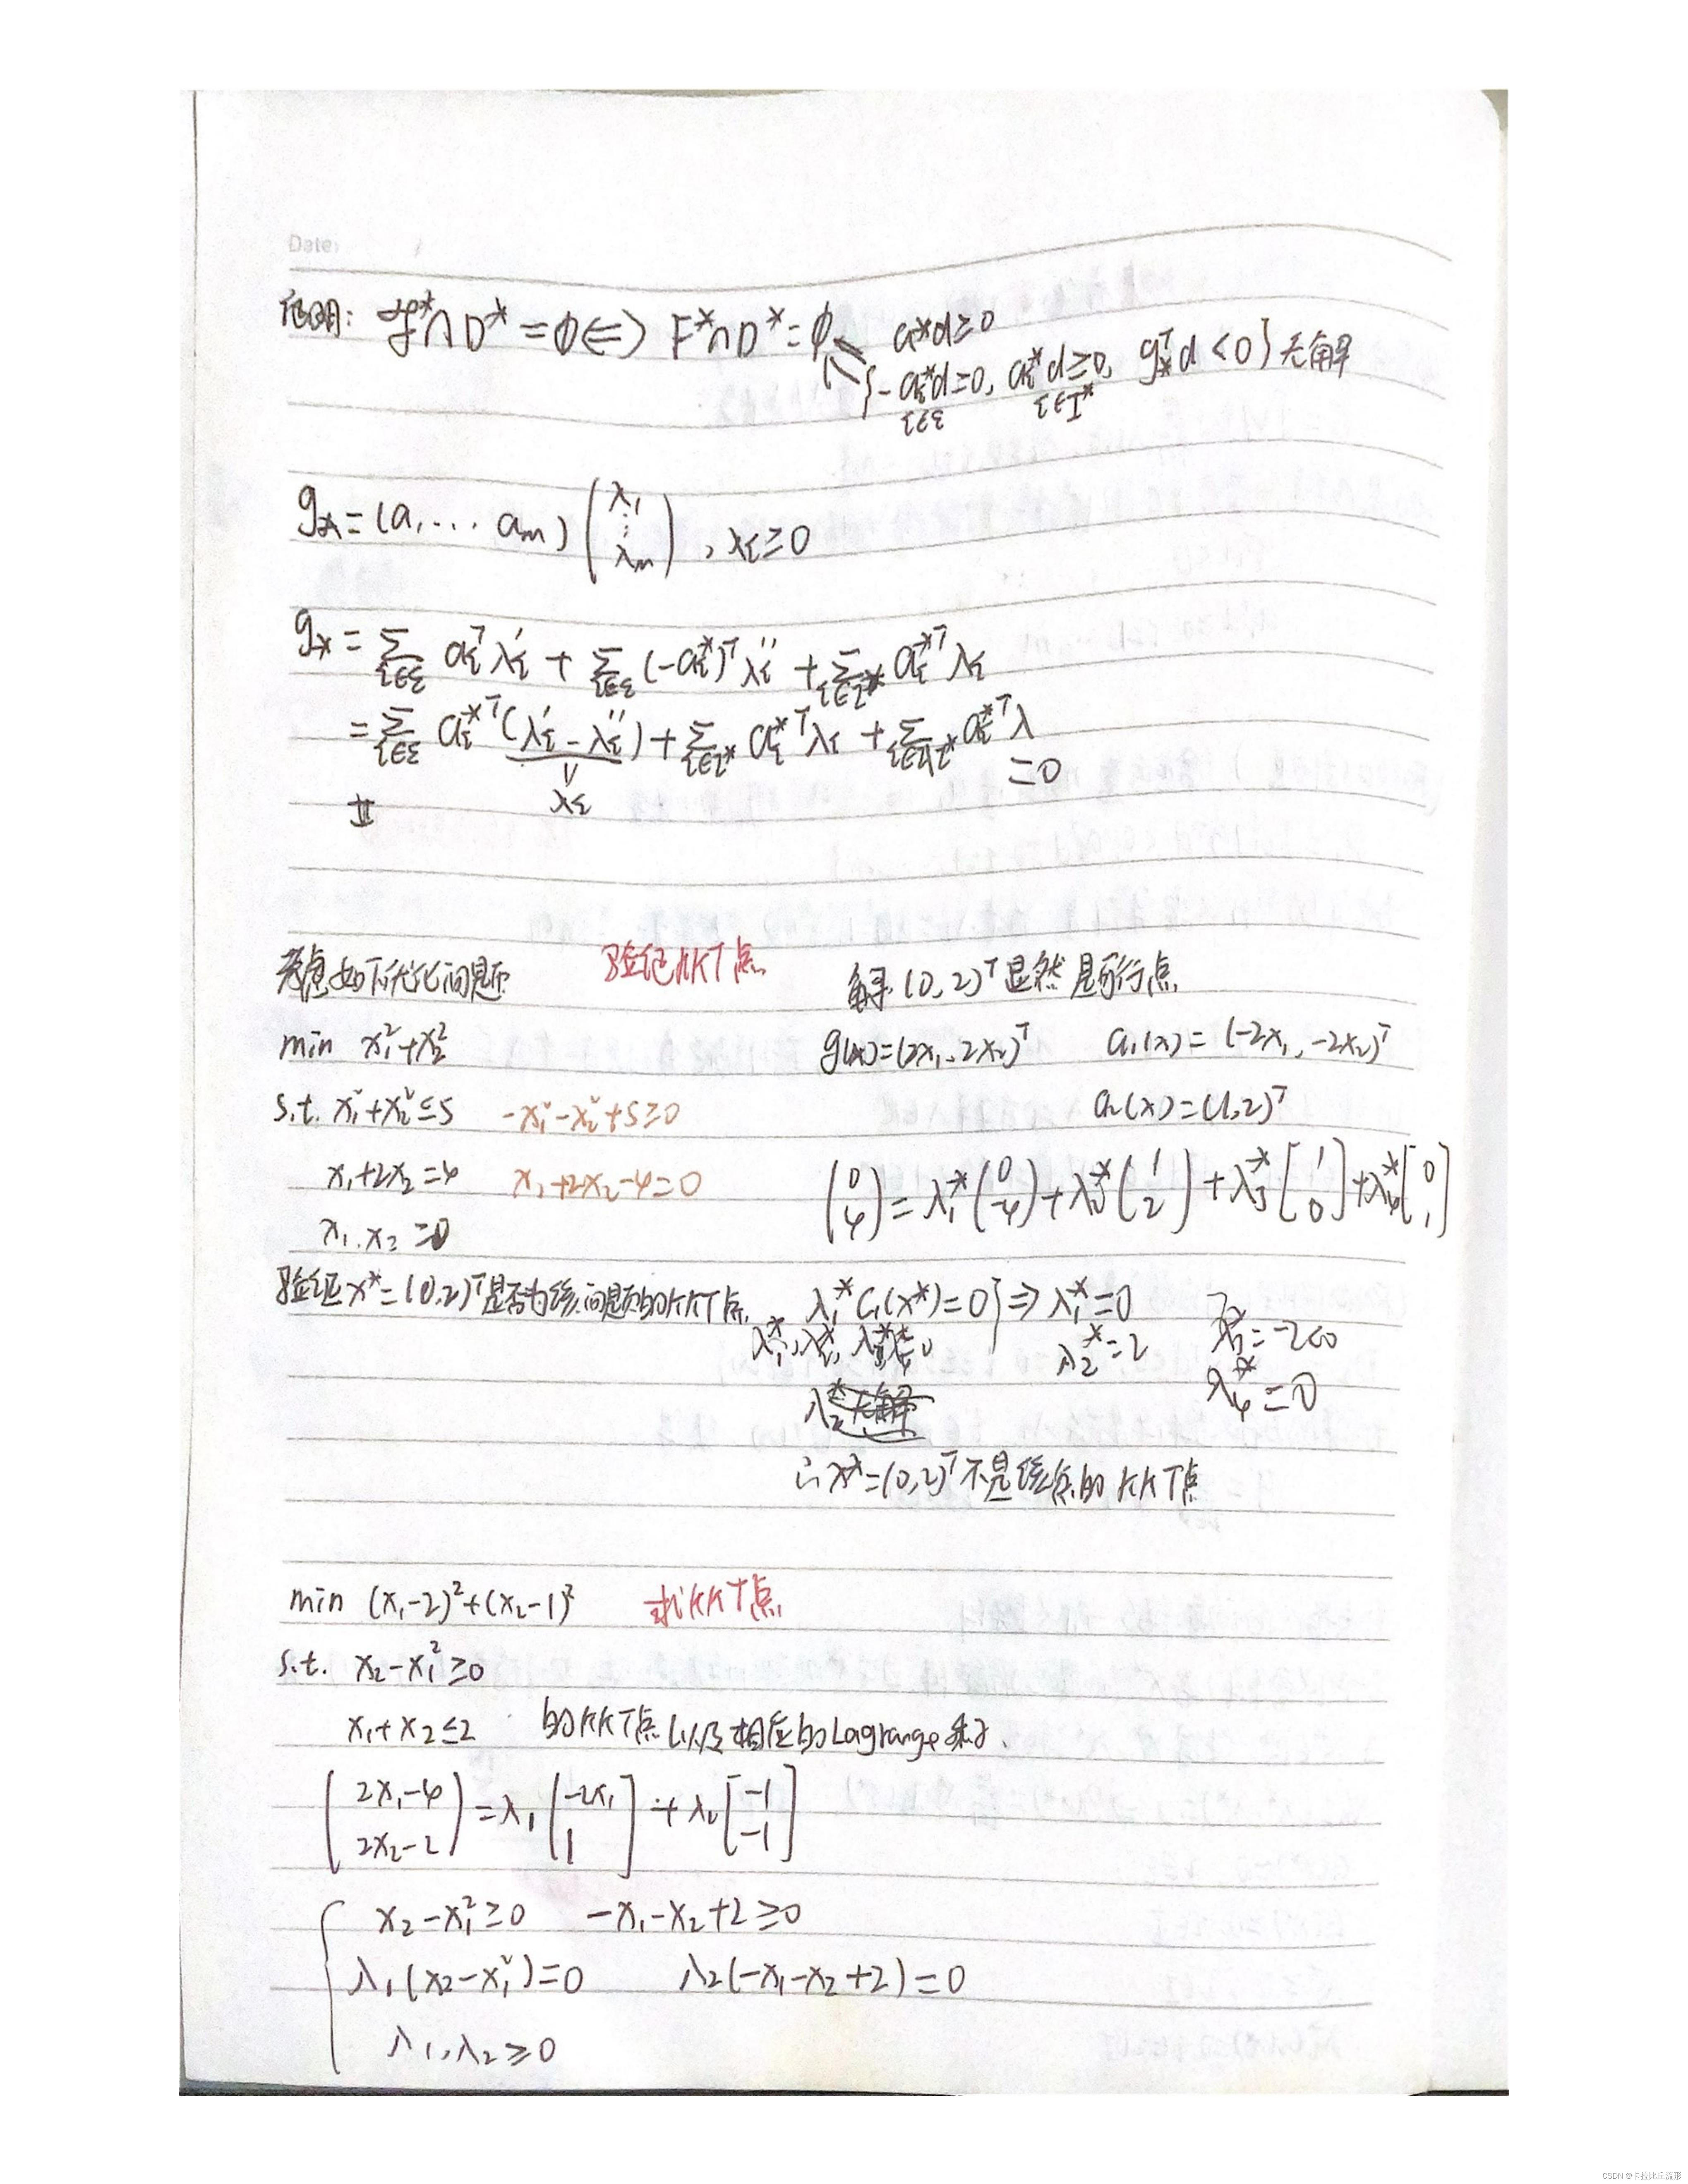 Date:
证明: 𝓕*∩D* = ∅ ⟺ F*∩D* = ∅ a*d≥0
{-aᵢ*d=0, aᵢ*d≥0, g*ᵀd<0} 无解
i∈ε i∈I*
g* = (a₁ ... aₘ) (λ₁ ⋮ λₘ), λᵢ≥0
g* = Σ_{i∈ε} aᵢᵀλᵢ' + Σ_{i∈ε} (-aᵢ*)ᵀλᵢ'' + Σ_{i∈I*} aᵢ*ᵀλᵢ
= Σ_{i∈ε} aᵢ*ᵀ(λᵢ' - λᵢ'') + Σ_{i∈I*} aᵢ*ᵀλᵢ + Σ_{i∈I\I*} aᵢ*ᵀλ
λᵢ =0
考虑如下优化问题 验证KKT点
min x₁²+x₂²
s.t. x₁²+x₂²≤5 -x₁²-x₂²+5≥0
x₁+2x₂=4 x₁+2x₂-4=0
x₁,x₂≥0
验证x*=(0,2)ᵀ是否为该问题的KKT点
解: (0,2)ᵀ显然是可行点
g(x)=(2x₁,2x₂)ᵀ a₁(x)=(-2x₁,-2x₂)ᵀ
a₂(x)=(1,2)ᵀ
(0 4) = λ₁*(0 -4) + λ₂*(1 2) + λ₃*[1 0] + λ₄*[0 1]
λ₁*C₁(x*)=0 } ⇒ λ₁*=0 λ₃*=-2<0
λ₂*=2 λ₄*=0
∴ x*=(0,2)ᵀ不是该点的KKT点
min (x₁-2)²+(x₂-1)² 求KKT点
s.t. x₂-x₁²≥0
x₁+x₂≤2 的KKT点以及相应的Lagrange乘子.
(2x₁-4 2x₂-2) = λ₁[-2x₁ 1] + λ₂[-1 -1]
{ x₂-x₁²≥0 -x₁-x₂+2≥0
λ₁(x₂-x₁²)=0 λ₂(-x₁-x₂+2)=0
λ₁,λ₂≥0
CSDN @卡拉比丘流形